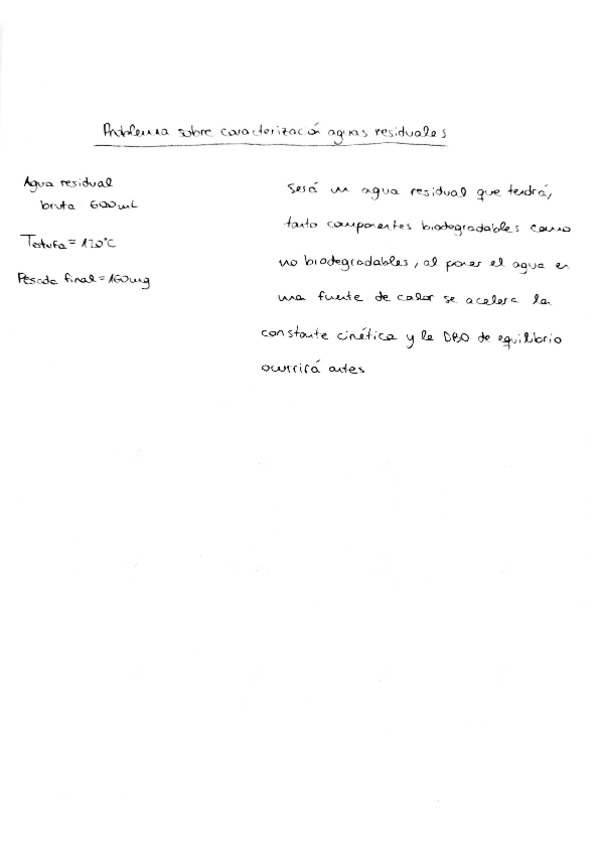 Problema sobre caracterización aguas residuales
Agua residual
bruta 600mL
Testufa = 120°C
Pesada final = 160mg
Será un agua residual que tendrá,
tanto componentes biodegradables como
no biodegradables, al poner el agua en
una fuente de calor se acelera la
constante cinética y la DBO de equilibrio
ocurrirá antes